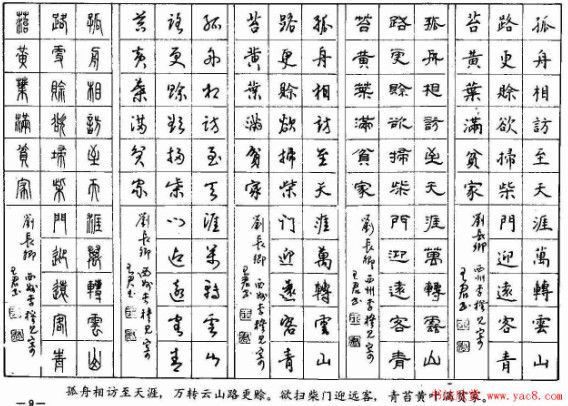 孤舟相訪至天涯萬轉雲山
路更賒欲掃柴門迎遠客青
苔黃葉滿貧家
劉長卿 酬李穆見寄
孤舟相訪至天涯萬轉雲山
路更賒欲掃柴門迎遠客青
苔黃葉滿貧家
劉長卿 酬李穆見寄
孤舟相訪至天涯萬轉雲山
路更賒欲掃柴门迎遠客青
苔黃葉滿貧家
劉長卿 酬李穆見寄
孤舟相訪至天涯萬轉雲山
路更賒欲掃柴門迎遠客青
苔黃葉滿貧家
劉長卿 酬李穆見寄
孤舟相訪至天涯萬轉雲山
路更賒欲掃柴門迎遠客青
苔黃葉滿貧家
劉長卿 酬李穆見寄
孤舟相访至天涯，万转云山路更赊。欲扫柴门迎远客，青苔黄叶满贫家。
书法欣赏
www.yac8.com